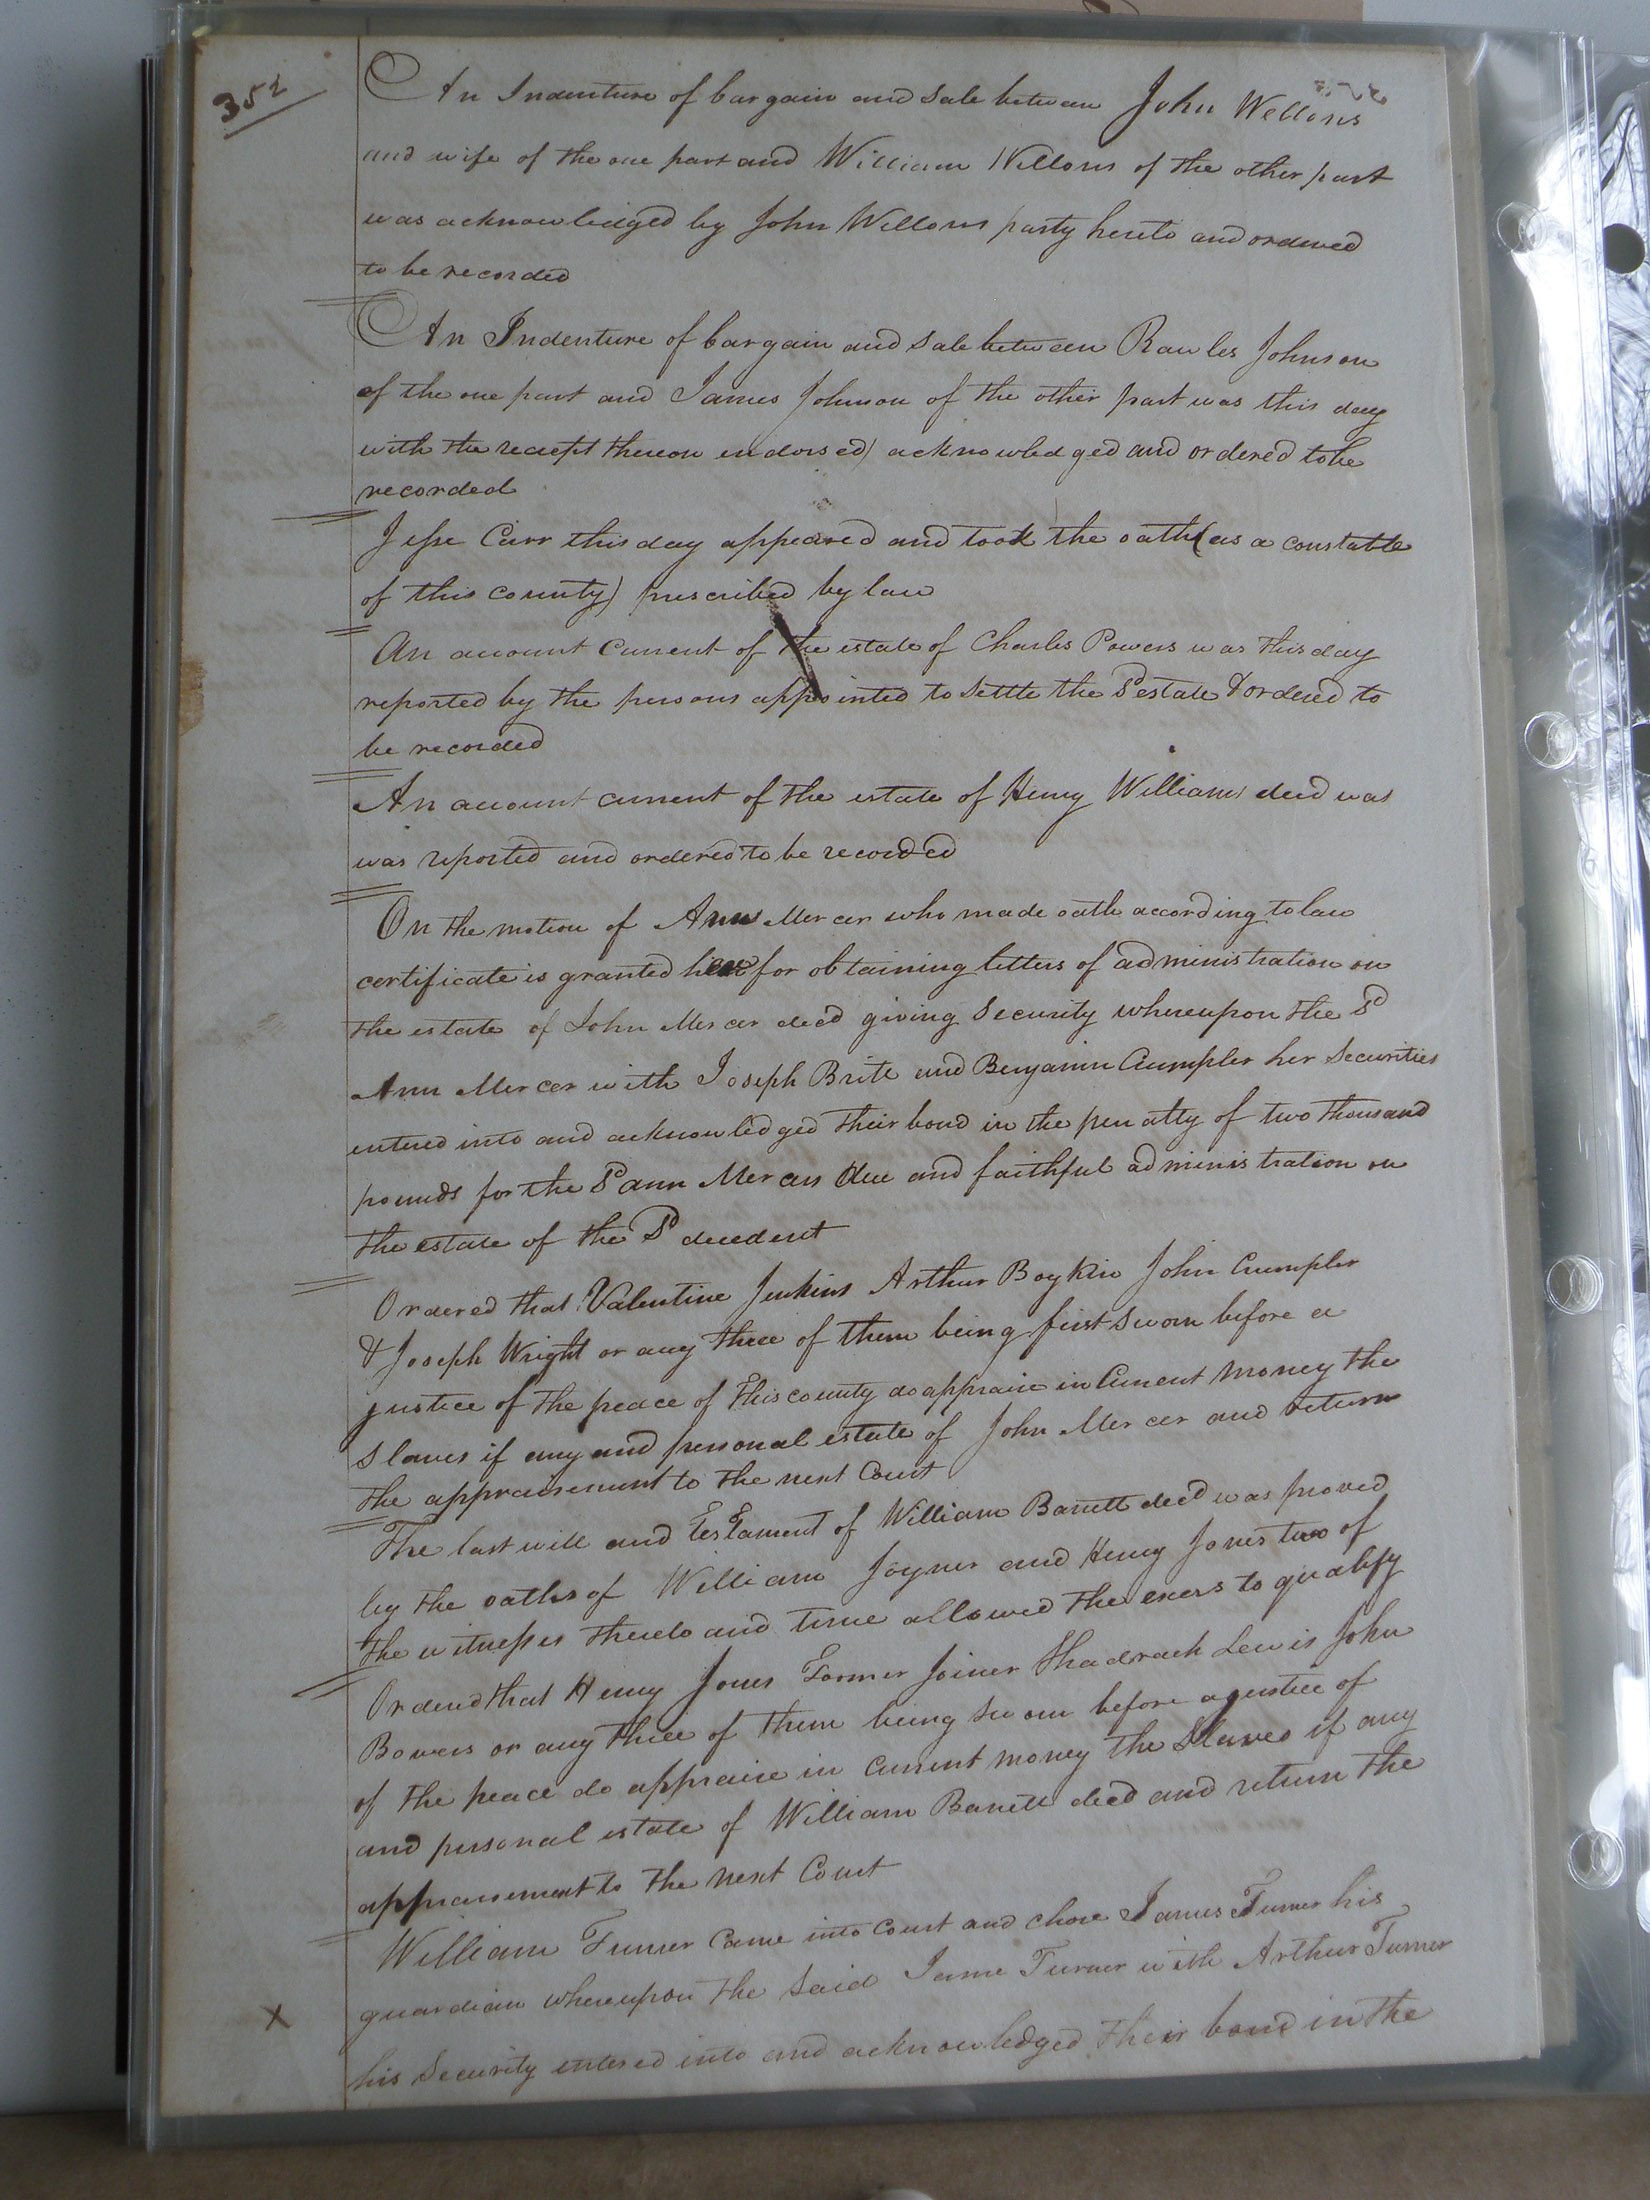 352
An Indenture of bargain and sale between John Wellons
and wife of the one part and William Wellons of the other part
was acknowledged by John Wellons party hereto and ordered
to be recorded
An Indenture of bargain and sale between Rawles Johnson
of the one part and James Johnson of the other part was this day
with the receipt thereon endorsed) acknowledged and ordered to be
recorded
Jesse Carr this day appeared and took the oath (as a constable
of this county) prescribed by law
An account current of the estate of Charles Powers was this day
reported by the persons appointed to settle the Sd estate & ordered to
be recorded
An account current of the estate of Henry Williams decd was
was reported and ordered to be recorded
On the motion of Ann Mercer who made oath according to law
certificate is granted her for obtaining letters of administration on
the estate of John Mercer decd giving Security whereupon the Sd
Ann Mercer with Joseph Brite and Benjamin Crumpler her Securities
entered into and acknowledged their bond in the penalty of two thousand
pounds for the Sd ann Mercers due and faithful administration on
the estate of the Sd decedent
Ordered that Valentine Jenkins Arthur Boykin John Crumpler
& Joseph Wright or any three of them being first Sworn before a
justice of the peace of this county do appraise in Current money the
Slaves if any and personal estate of John Mercer and return
the appraisement to the next Court
The last will and testament of William Barrett decd was proved
by the oaths of William Joyner and Henry Jones two of
the witnesses thereto and time allowed the exers to qualify
Ordered that Henry Jones Joiner Shadrach Lewis John
Bowers or any three of them being Sworn before a justice of
of the peace do appraise in Current money the Slaves if any
and personal estate of William Barrett decd and return the
appraisement to the next Court
William Turner Came into Court and chose James Turner his
guardian whereupon the Said Jame Turner with Arthur Turner
X
his Security entered into and acknowledged their bond in the